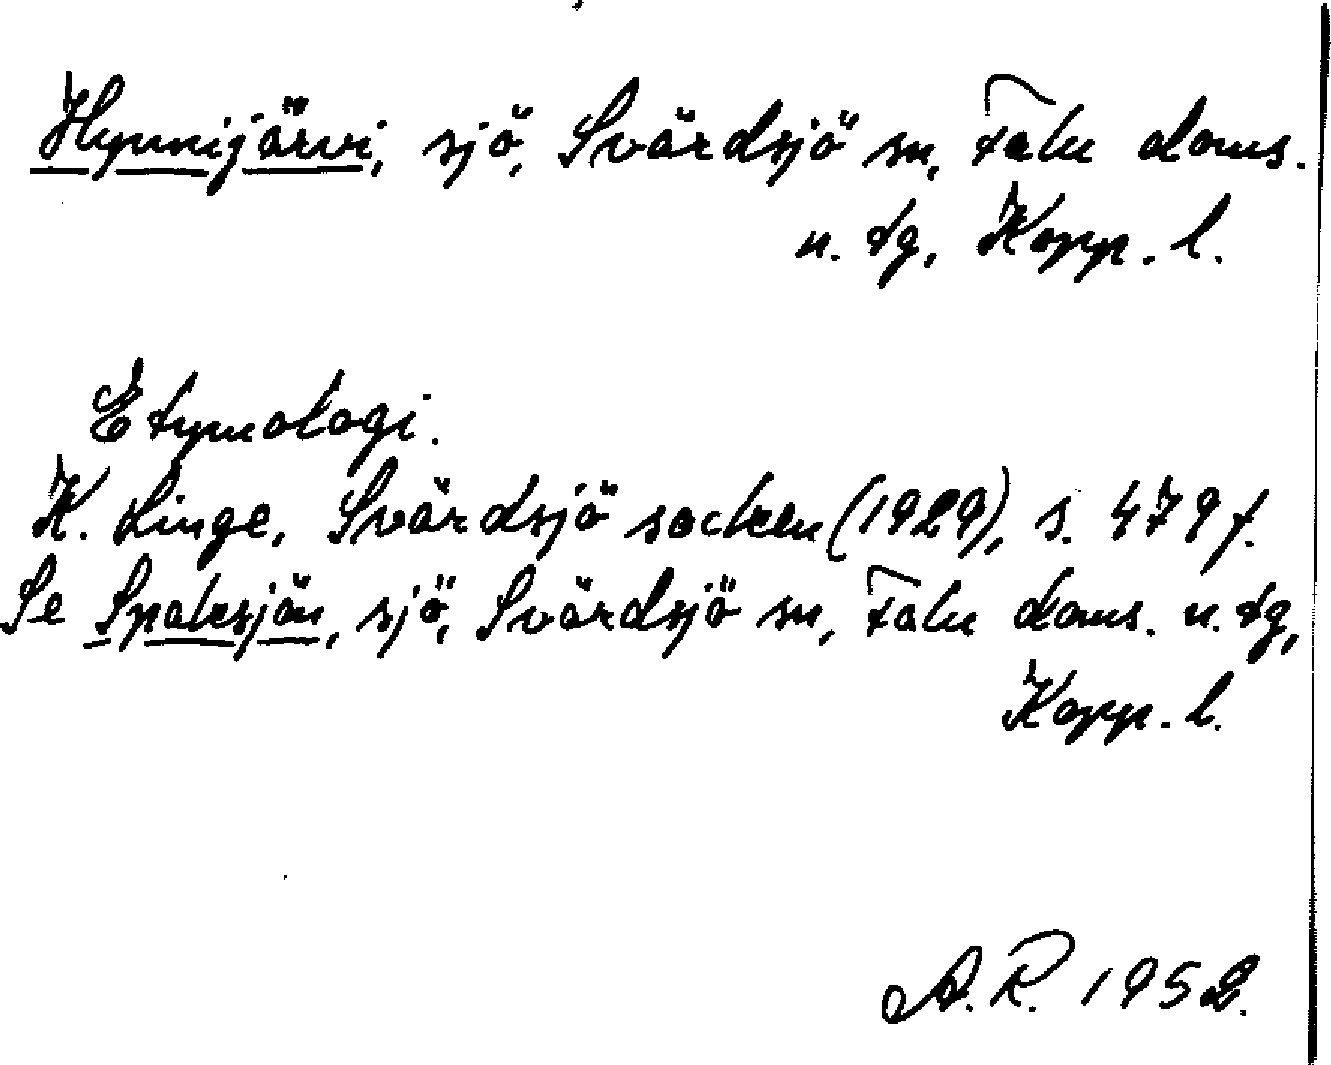 Hynnijärvi, sjö, Svärdsjö sn, Falu doms.
n. tg, Kopp. l.
Etymologi.
K. Linge, Svärdsjö socken (1929), s. 479 f.
Se Spaksjön, sjö, Svärdsjö sn, Falu doms. n. tg,
Kopp. l.
A. R. 1952.